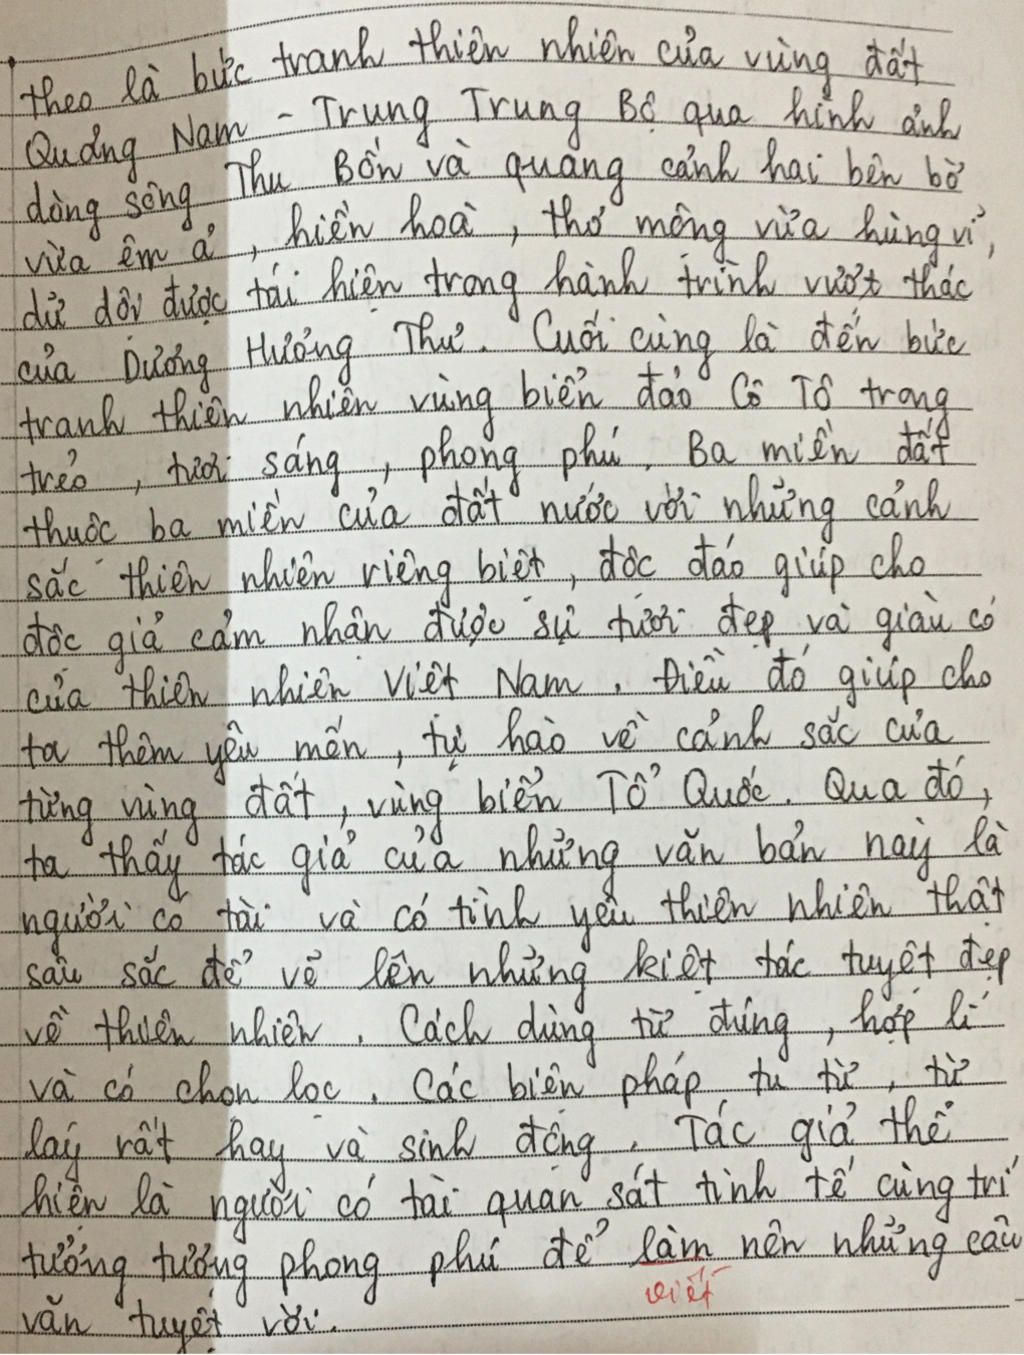 theo là bức tranh thiên nhiên của vùng đất
Quảng Nam - Trung Trung Bộ qua hình ảnh
dòng sông Thu Bồn và quang cảnh hai bên bờ
vừa êm ả, hiền hoà, thơ mộng vừa hùng vĩ,
dữ dội được tái hiện trong hành trình vượt thác
của Dượng Hương Thư. Cuối cùng là đến bức
tranh thiên nhiên vùng biển đảo Cô Tô trong
trẻo, tươi sáng, phong phú. Ba miền đất
thuộc ba miền của đất nước với những cảnh
sắc thiên nhiên riêng biệt, độc đáo giúp cho
độc giả cảm nhận được sự tươi đẹp và giàu có
của thiên nhiên Việt Nam. Điều đó giúp cho
ta thêm yêu mến, tự hào về cảnh sắc của
từng vùng đất, vùng biển Tổ Quốc. Qua đó,
ta thấy tác giả của những văn bản này là
người có tài và có tình yêu thiên nhiên thật
sâu sắc để vẽ lên những kiệt tác tuyệt đẹp
về thiên nhiên. Cách dùng từ đúng, hợp lí
và có chọn lọc. Các biện pháp tu từ, từ
láy rất hay và sinh động. Tác giả thể
hiện là người có tài quan sát tinh tế cùng trí
tưởng tượng phong phú để làm nên những câu
viết
văn tuyệt vời.